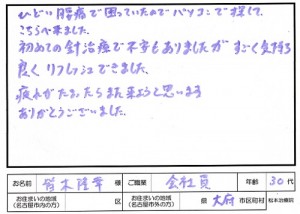 ひどい腰痛で困っていたのでパソコンで探して、
こちらへ来ました。
初めての針治療で不安もありましたがすごく気持ち
良くリフレッシュできました。
疲れがたまったらまた来ようと思います
ありがとうございました。
お名前 青木隆幸 様 ご職業 会社員 年齢 30代
お住まいの地域(名古屋市内の方) 区 お住まいの地域(名古屋市外の方) 県 大府 市区町村 松本治療院